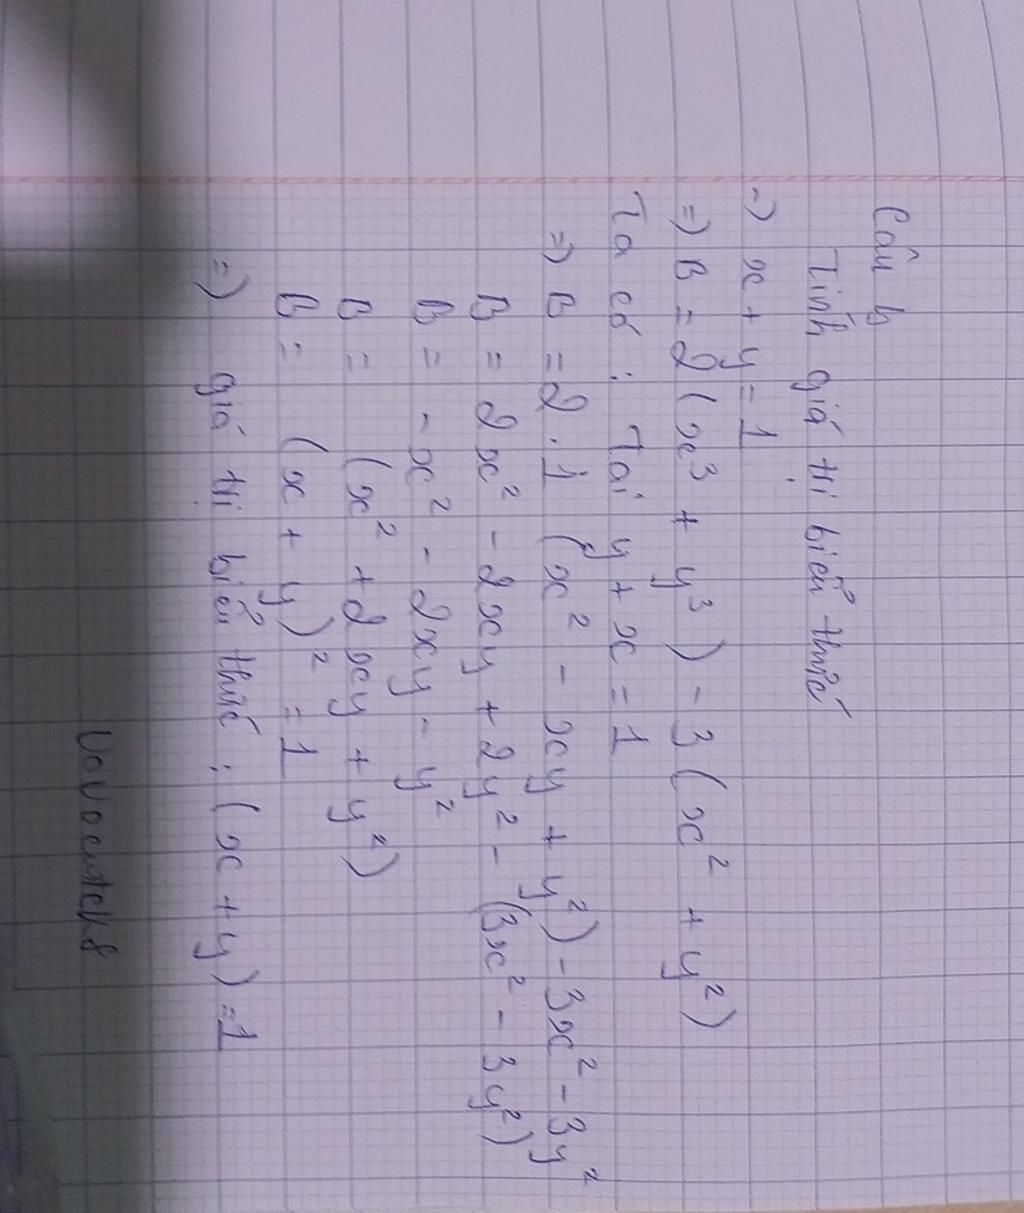 Câu b
Tính giá trị biểu thức
=) x + y = 1
=) B = 2 (x³ + y³) - 3 (x² + y²)
Ta có : Tại y + x = 1
=) B = 2 . 1 (x² - xy + y²) - 3x² - 3y²
B = 2x² - 2xy + 2y² - (3x² - 3y²)
B = - x² - 2xy - y²
B = (x² + 2xy + y²)
B = (x + y)² = 1
=) giá trị biểu thức : (x + y) = 1